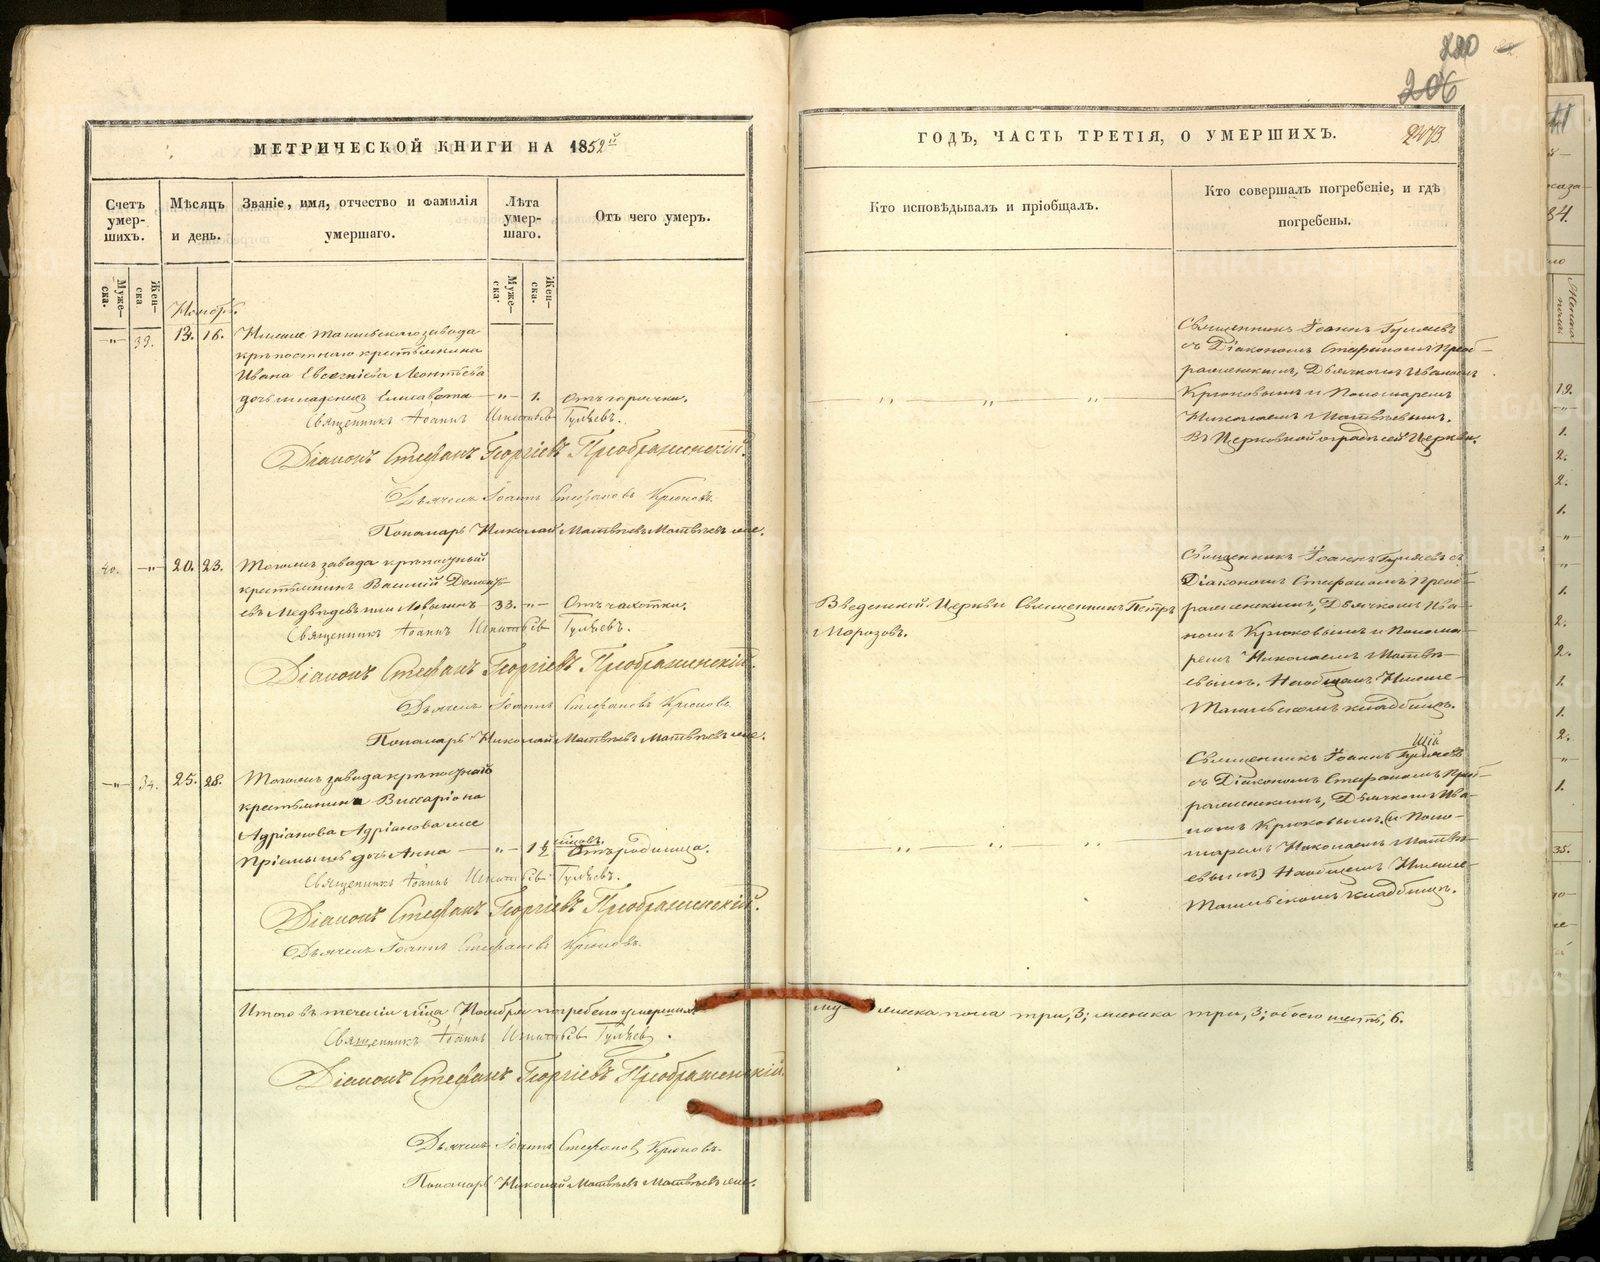 220
206
МЕТРИЧЕСКОЙ КНИГИ НА 1852й
ГОДЪ, ЧАСТЬ ТРЕТІЯ, О УМЕРШИХЪ.
Счетъ умер-шихъ.
Мѣсяцъ и день.
Званіе, имя, отчество и фамилія умершаго.
Лѣта умер-шаго.
Отъ чего умеръ.
Кто исповѣдывалъ и пріобщалъ.
Кто совершалъ погребеніе, и гдѣ погребены.
Муже-ска.
Жен-ска
Муже-ска.
Жен-ска.
Ноябр.
-„- 39. 13. 16. Нижне Тагильскаго завода
крѣпостнаго крестьянина
Ивана Евсегніева Леонтьева
дочь младенецъ Елисавета -„- 1. Отъ горячки.
Священникъ Іоаннъ Игнатьевъ Гуляевъ.
Діаконъ Стефанъ Георгіевъ Преображенскій.
Дьячекъ Іоаннъ Стефановъ Крюковъ.
Пономарь Николай Матвѣевъ Матвѣевъ же.
„ „ „
Священникъ Іоаннъ Гуляевъ
съ Діакономъ Стефаномъ Преоб-
раженскимъ, Дьячкомъ Иваномъ
Крюковымъ и Пономаремъ
Николаемъ Матвѣевымъ.
Въ Церковной оградѣ сей Церкви.
40. -„- 20. 23. Тогожъ завода крѣпостный
крестьянинъ Василій Демент-
евъ Медвѣдевъ или Ловыгинъ 33. -„- Отъ чахотки.
Священникъ Іоаннъ Игнатьевъ Гуляевъ.
Діаконъ Стефанъ Георгіевъ Преображенскій.
Дьячекъ Іоаннъ Стефановъ Крюковъ
Пономарь Николай Матвѣевъ Матвѣевъ же.
Введенской Церкви Священникъ Петръ
Морозовъ.
Священникъ Іоаннъ Гуляевъ съ
Діакономъ Стефаномъ Преоб-
раженскимъ, Дьячкомъ Ива-
номъ Крюковымъ и Понома-
ремъ Николаемъ Матвѣ-
евымъ. На общемъ Нижне-
Тагильскомъ кладбищѣ.
-„- 34. 25. 28. Тогожъ завода крѣпостнаго
крестьянина Виссаріона
Адріанова Адріанова же
Пріемышъ дочь Анна -„- 1½ Отъ родимца.
Священникъ Іоаннъ Игнатьевъ Гуляевъ.
Діаконъ Стефанъ Георгіевъ Преображенскій.
Дьячекъ Іоаннъ Стефановъ Крюковъ.
„ „ „
Священникъ Іоаннъ Гуляевъ
съ Діакономъ Стефаномъ Преоб-
раженскимъ, Дьячкомъ Ива-
номъ Крюковымъ (и Поно-
маремъ Николаемъ Матвѣ-
евымъ) На общемъ Нижне-
Тагильскомъ кладбищѣ.
Итого въ теченіи мѣсяца Ноября погребено умершихъ мужеска пола три, 3; женска три, 3; обоего шесть, 6.
Священникъ Іоаннъ Игнатьевъ Гуляевъ.
Діаконъ Стефанъ Георгіевъ Преображенскій.
Дьячекъ Іоаннъ Стефановъ Крюковъ.
Пономарь Николай Матвѣевъ Матвѣевъ же.